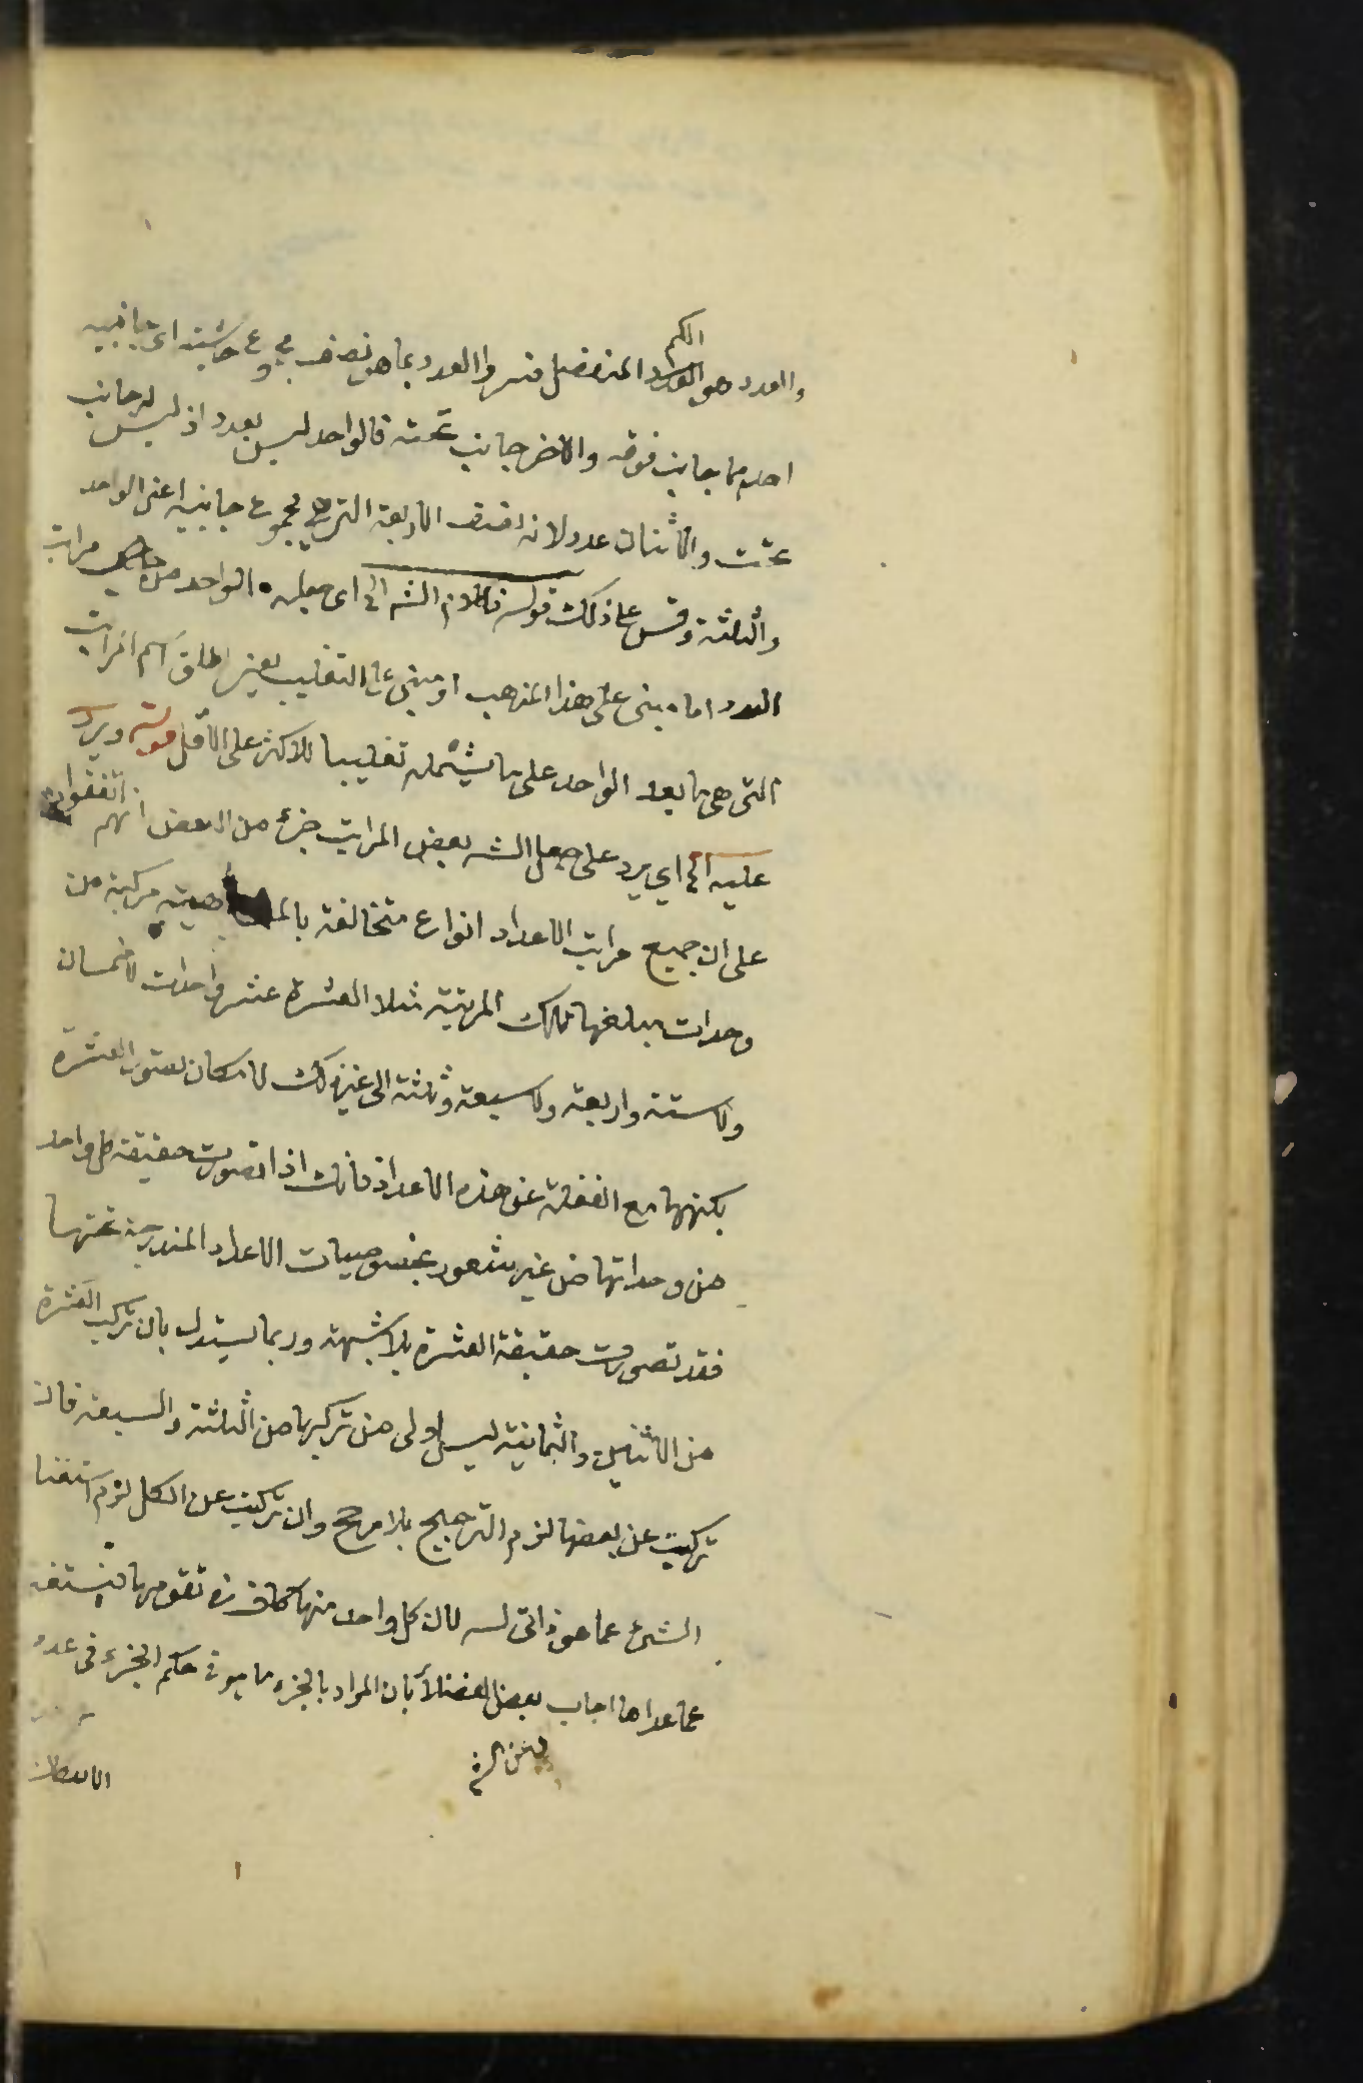 الكم
والعدد هو العدد المنفصل فسروا العدد بما هو نصف مجموع حاشيته اى جانبيه
احدهما جانب فوقه والاخر جانب تحته فالواحد ليس بعدد اذ ليس له جانب
تحت والاثنان عدد لانه نصف الاربعة التى هى مجموع جانبيه اعنى الواحد
والثلثة وقس على ذلك قوله فكلام الش الخ اى جعله الواحد من مراتب
العدد اما مبنى على هذا المذهب او مبنى على التغليب يعنى اطلق اسم المراتب
التى هى ما بعد الواحد على ما يشمله تغليبا للاكثر على الاقل قوله ويرد
عليه الخ اى يرد على جعل الشه بعض المراتب جزء من البعض انهم اتفقوا
على ان جميع مراتب الاعداد انواع متخالفة بالماهية مركبة من
وحدات مبلغها تلك المرتبة مثلا العشرة عشر واحدات لا خمسان
ولا ستة واربعة ولا سبعة وثلثة الى غير ذلك لامكان تصور العشرة
بكنهها مع الغفلة عن هذه الاعداد فانك اذا تصورت حقيقة كل واحد
من وحداتها من غير شعور بخصوصيات الاعداد المندرجة تحتها
فقد تصورت حقيقة العشرة بلا شبهة وربما يستدل بان تركب العشرة
من الاثنين والثمانية ليس اولى من تركبها من الثلثة والسبعة فان
تركبت عن بعضها لزم الترجيح بلا مرجح وان تركبت عن الكل لزم استغنا
الشئ عما هو ذاتى له لان كل واحد منها كاف فى تقومها فيستغنى
عما عداها اجاب بعض الفضلأ بان المراد بالجزء ما هو فى حكم الجزء فى عدم
الانفكاك